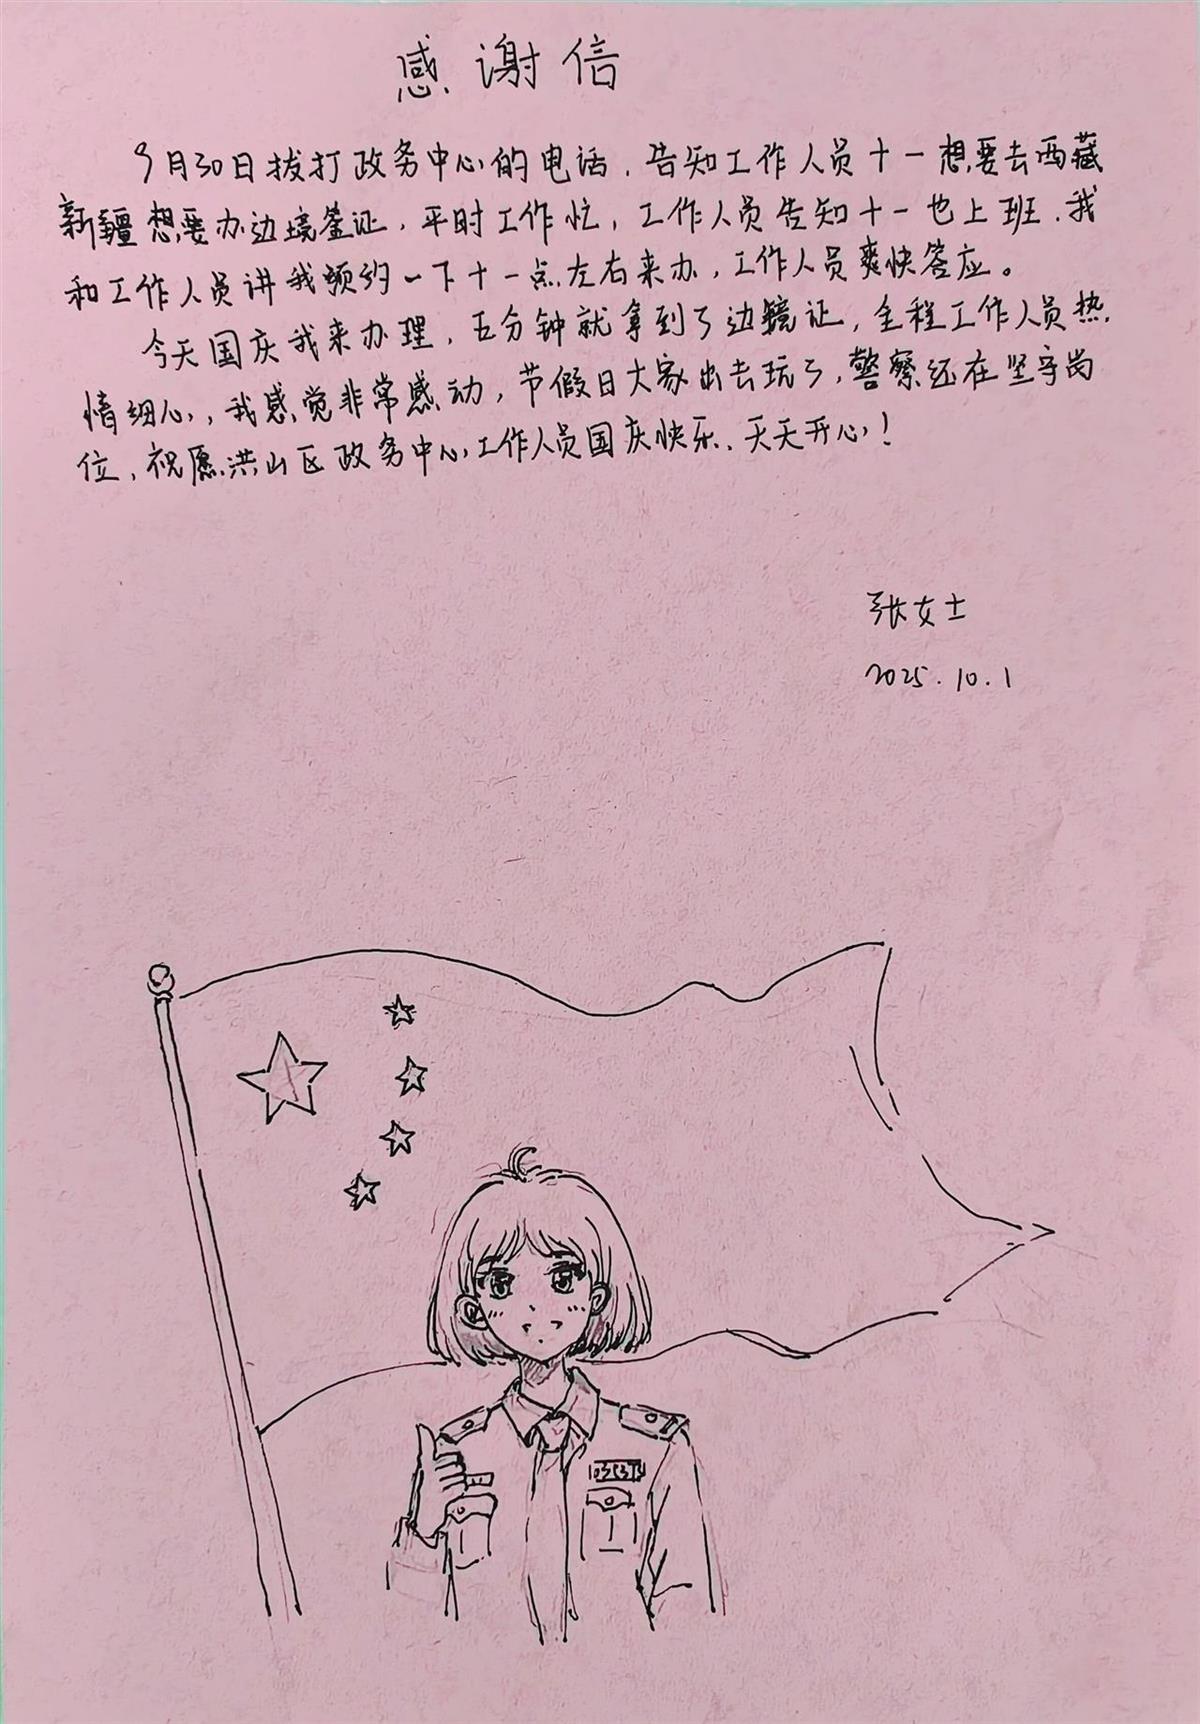 感谢信
9月30日拔打政务中心的电话，告知工作人员十一想要去西藏
新疆想要办边境签证，平时工作忙，工作人员告知十一也上班，我
和工作人员讲我预约一下十一点左右来办，工作人员爽快答应。
今天国庆我来办理，五分钟就拿到了边镜证，全程工作人员热
情细心，我感觉非常感动，节假日大家出去玩了，警察还在坚守岗
位，祝愿洪山区政务中心工作人员国庆快乐、天天开心！
张女士
2025.10.1